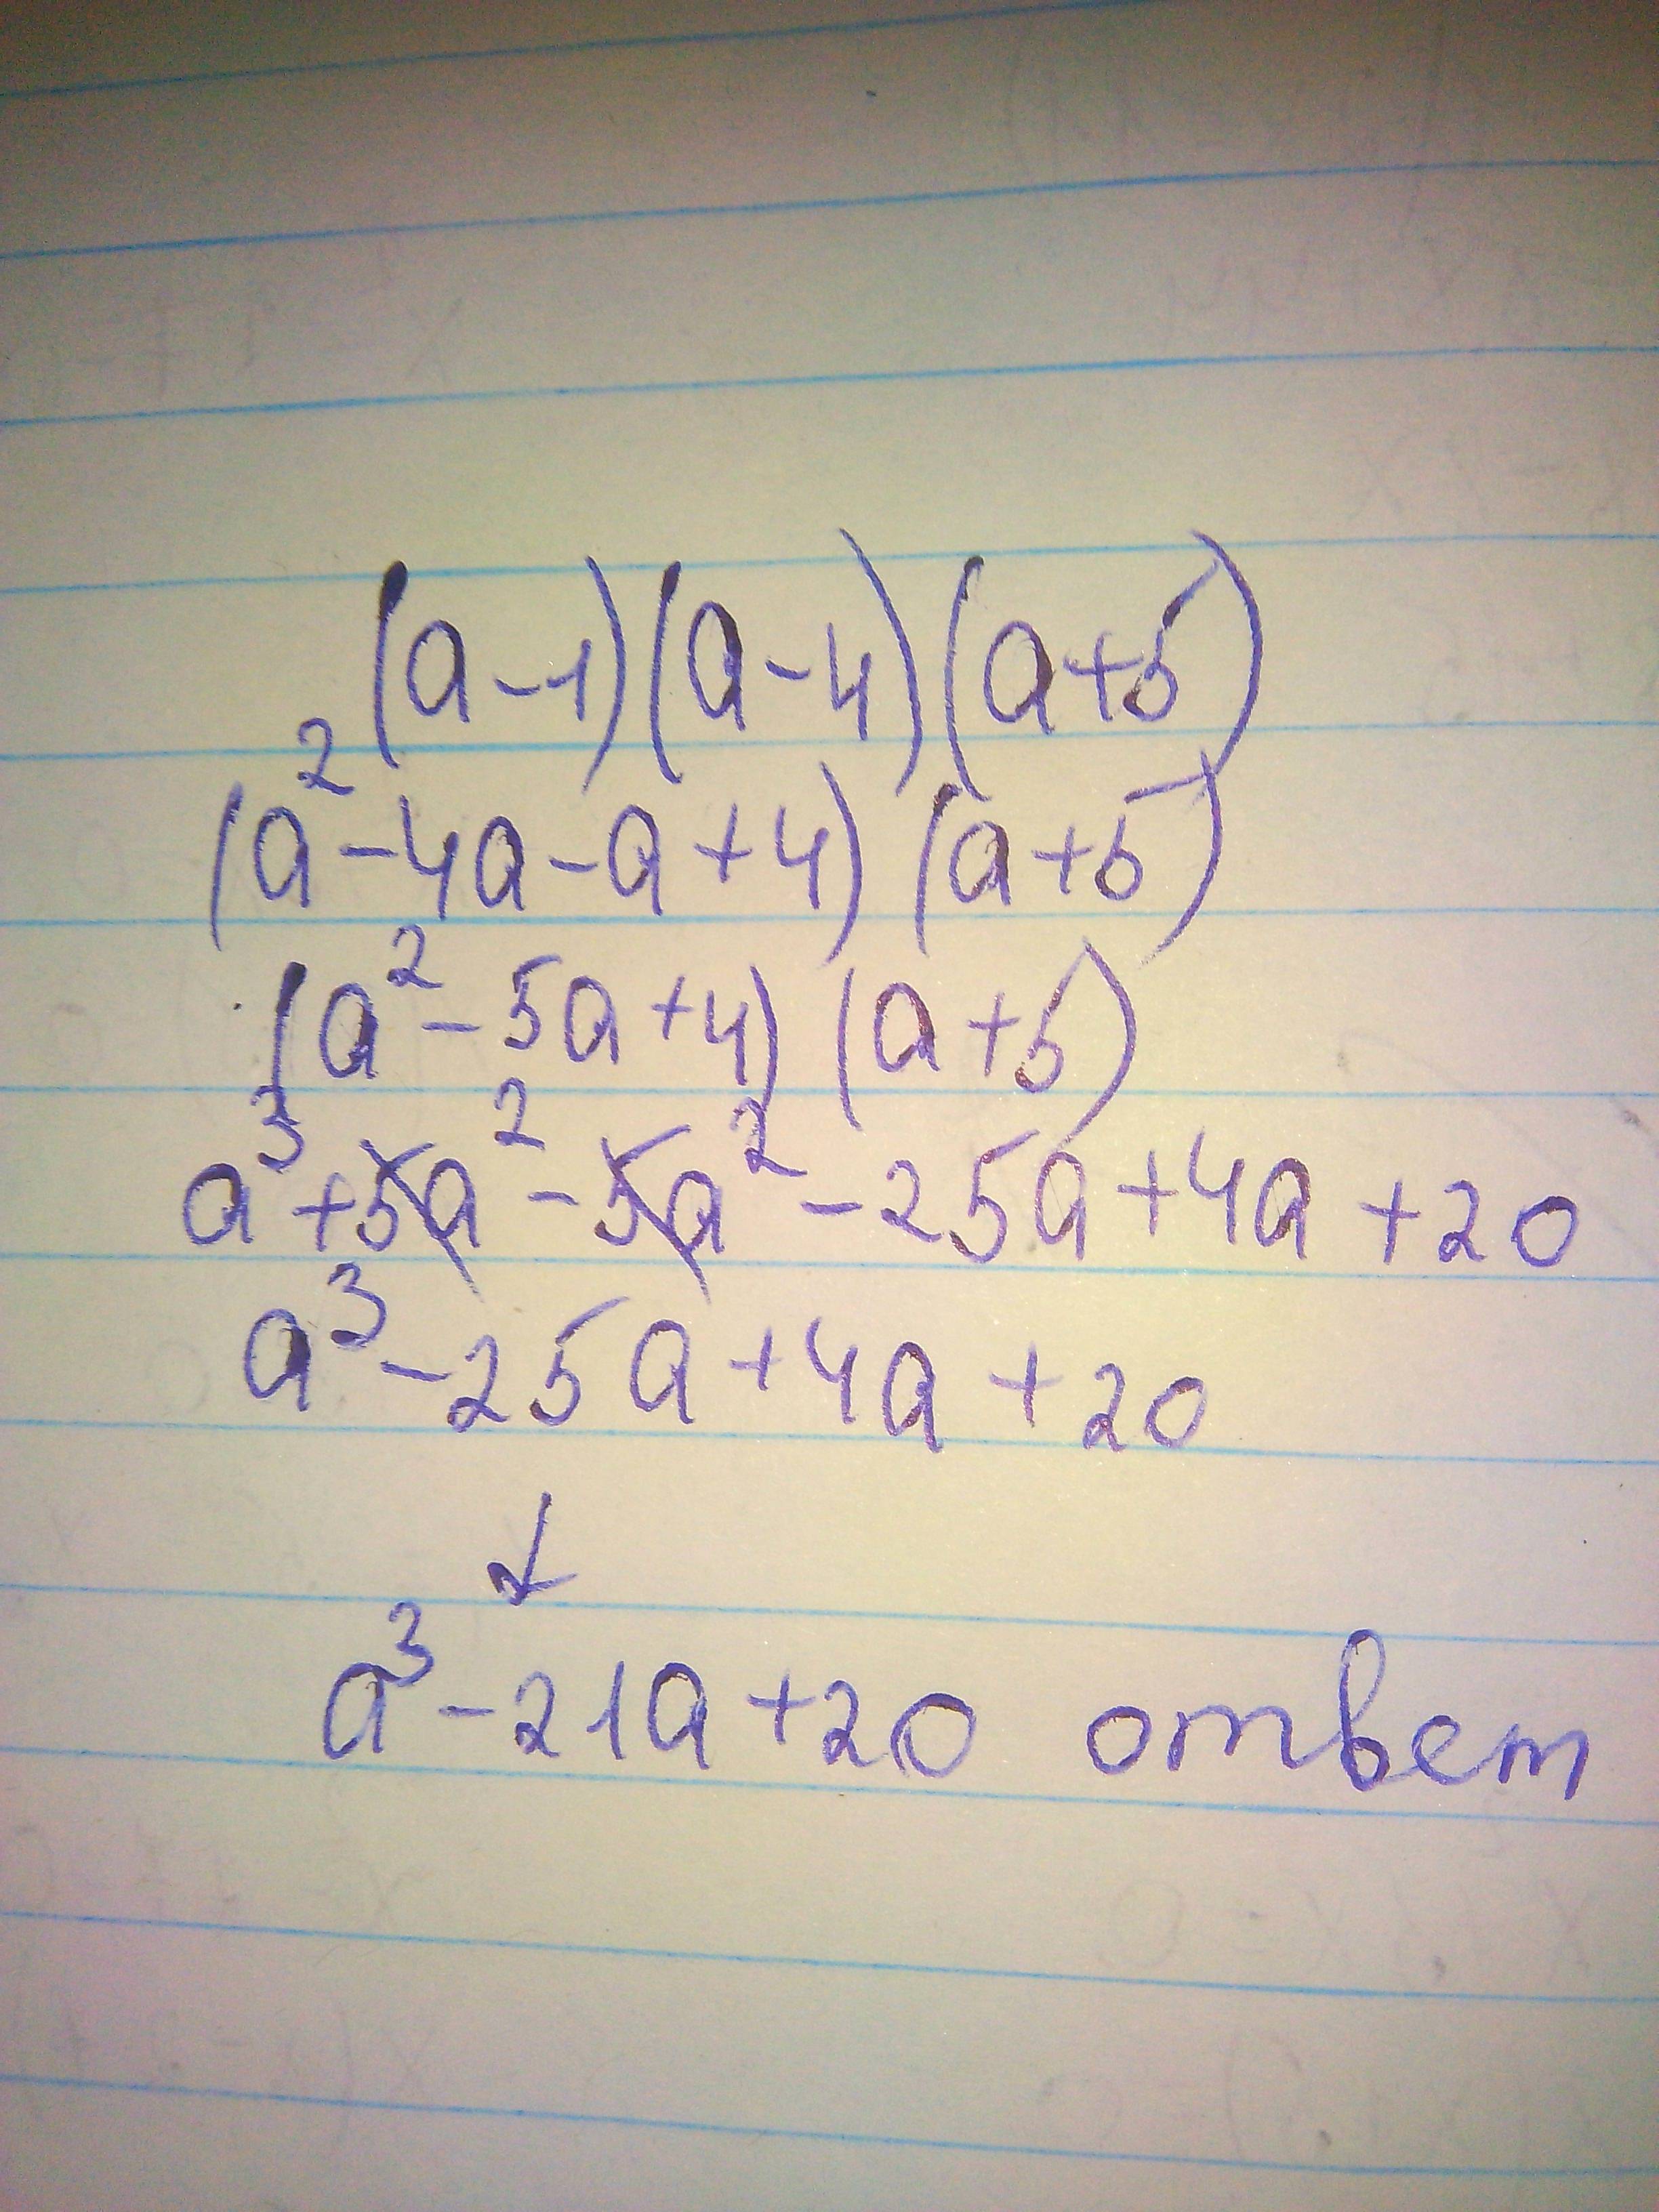 (a-1)(a-4)(a+5)
(a²-4a-a+4)(a+5)
(a²-5a+4)(a+5)
a³+5a²-5a²-25a+4a+20
a³-25a+4a+20
a³-21a+20 ответ